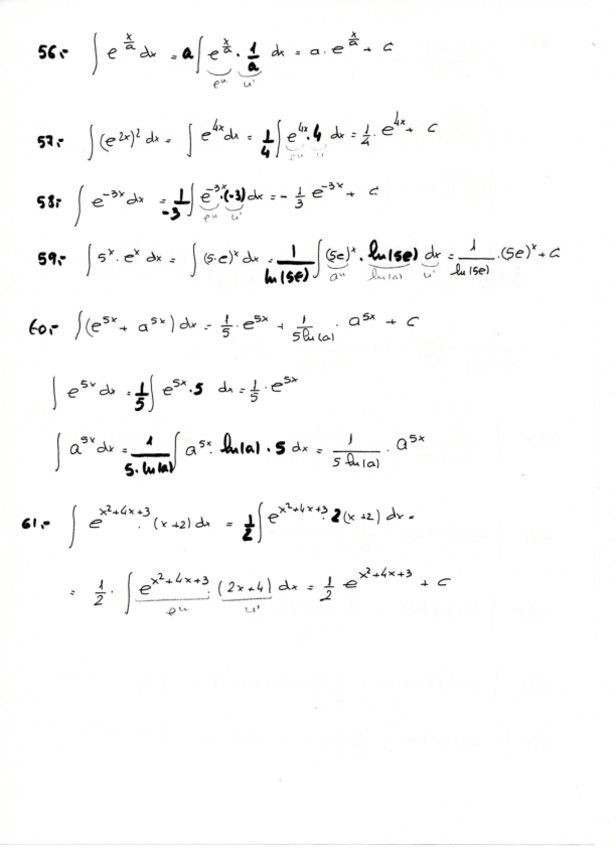 56.- ∫ e^(x/a) dx = a ∫ e^(x/a) · 1/a dx = a · e^(x/a) + C
e^u u'
57.- ∫ (e^(2x))^2 dx = ∫ e^(4x) dx = 1/4 ∫ e^(4x) · 4 dx = 1/4 · e^(4x) + C
e^u u'
58.- ∫ e^(-3x) dx = 1/-3 ∫ e^(-3x) · (-3) dx = - 1/3 e^(-3x) + C
e^u u'
59.- ∫ 5^x · e^x dx = ∫ (5·e)^x dx = 1/ln(5e) ∫ (5e)^x · ln(5e) dx = 1/ln(5e) · (5e)^x + C
a^u ln(a) u'
60.- ∫ (e^(5x) + a^(5x)) dx = 1/5 · e^(5x) + 1/(5 ln(a)) · a^(5x) + C
∫ e^(5x) dx = 1/5 ∫ e^(5x) · 5 dx = 1/5 · e^(5x)
∫ a^(5x) dx = 1/(5·ln(a)) ∫ a^(5x) · ln(a) · 5 dx = 1/(5 ln(a)) · a^(5x)
61.- ∫ e^(x^2+4x+3) · (x+2) dx = 1/2 ∫ e^(x^2+4x+3) · 2(x+2) dx =
= 1/2 · ∫ e^(x^2+4x+3) · (2x+4) dx = 1/2 e^(x^2+4x+3) + C
e^u u'